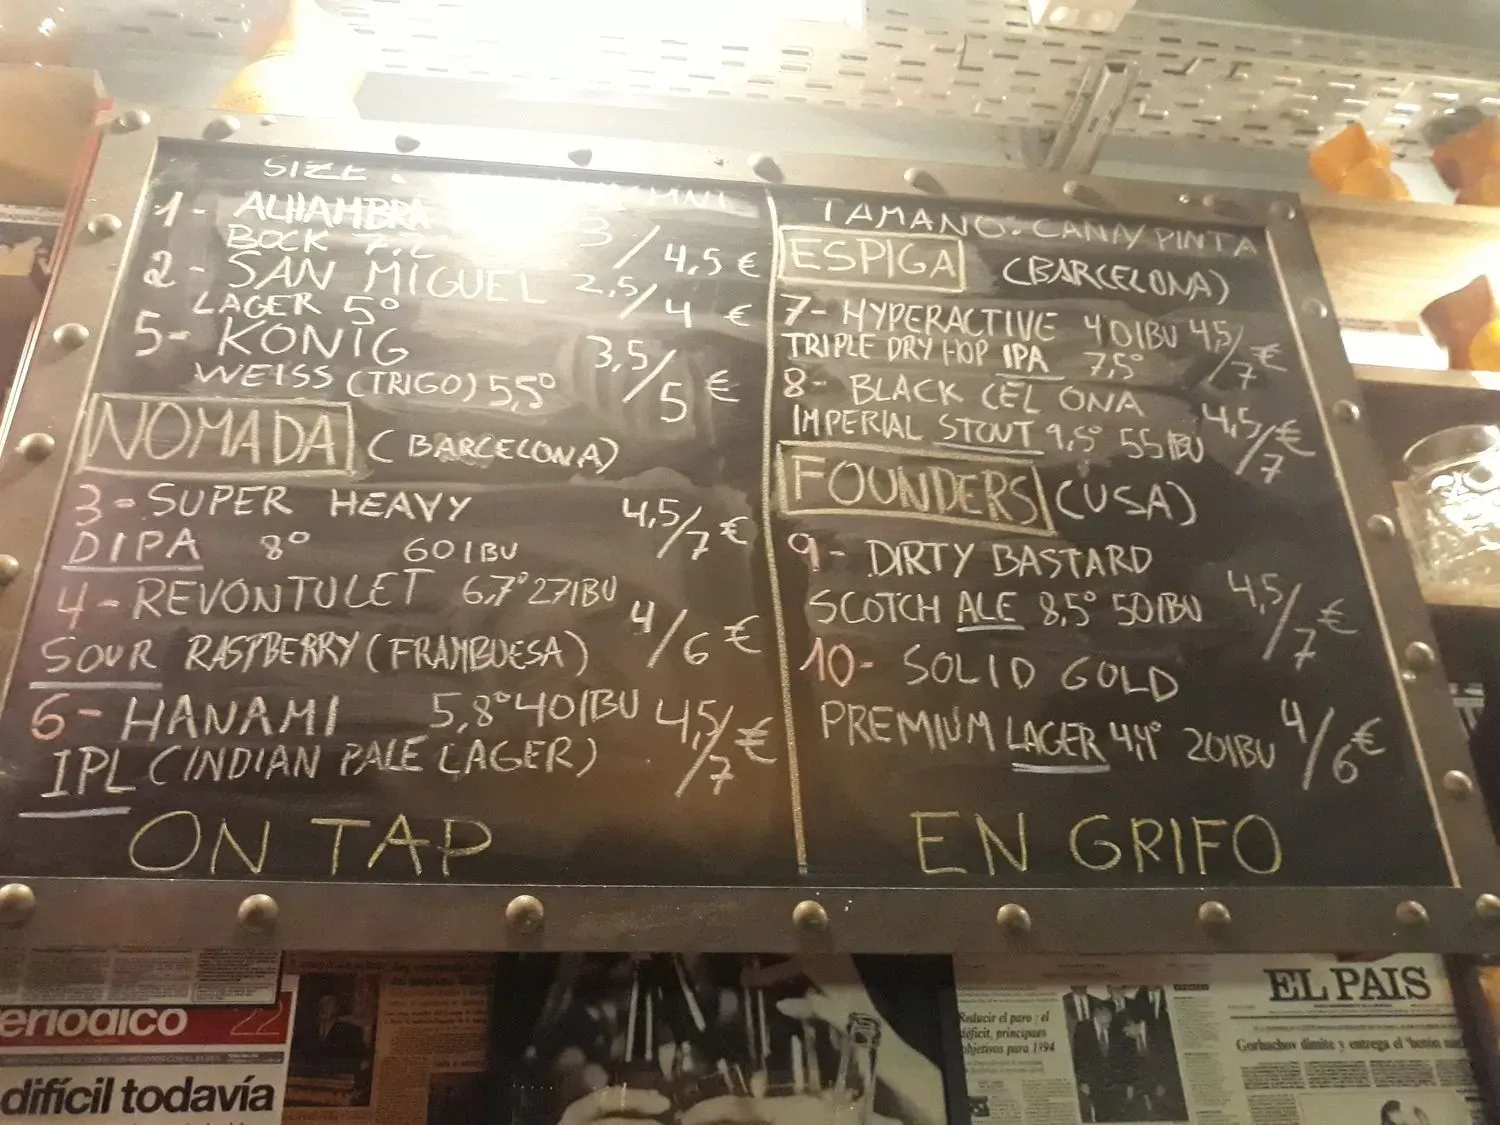 SIZE
1- ALHAMBRA
BOCK 7,2 3/4,5 €
2- SAN MIGUEL
LAGER 5° 2,5/4 €
5- KONIG
WEISS (TRIGO) 5,5° 3,5/5 €
NOMADA (BARCELONA)
3- SUPER HEAVY
DIPA 8° 60IBU 4,5/7 €
4- REVONTULET 6,7° 27IBU
SOUR RASTBERRY (FRAMBUESA) 4/6 €
6- HANAMI 5,8° 40IBU 4,5/7 €
IPL (INDIAN PALE LAGER)
ON TAP
TAMANO: CANA/PINTA
ESPIGA (BARCELONA)
7- HYPERACTIVE 40IBU 4,5/7 €
TRIPLE DRY HOP IPA 7,5°
8- BLACK CEL ONA
IMPERIAL STOUT 9,5° 55IBU 4,5/7 €
FOUNDERS (USA)
9- DIRTY BASTARD
SCOTCH ALE 8,5° 50IBU 4,5/7 €
10- SOLID GOLD
PREMIUM LAGER 4,4° 20IBU 4/6 €
EN GRIFO
eriodico 22
difícil todavía
Reducir el paro y el
déficit, principaes
objetivos para 1994
EL PAIS
Gorbachov dimite y entrega el 'botón